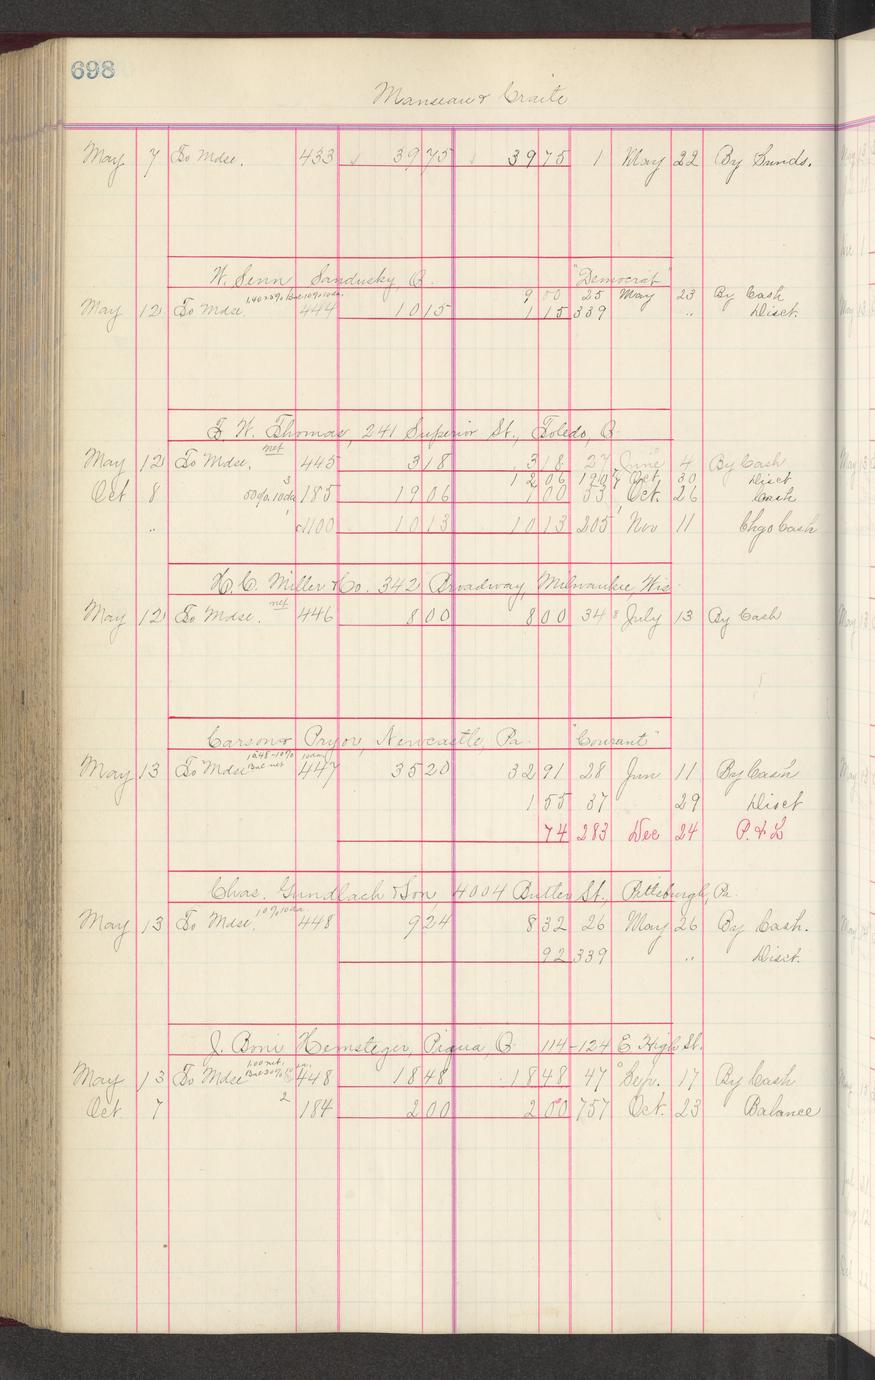 698
Manseau & Craite
May 7 To Mdse. 433 39 75 39 75 1 May 22 By Sunds.
W. Senn Sandusky O. "Democrat"
9 00 25 May 23 By Cash
May 12 To Mdse. 444 10 15 1 15 339 " Disct.
F. W. Thomas, 241 Superior St., Toledo, O.
May 12 To Mdse. net 445 3 18 3 18 27 June 4 By Cash
12 06 Oct. 30 Disct
Oct 8 50% 10 da 185 19 06 7 00 33 Oct. 26 Cash
" c1100 10 13 10 13 205 Nov 11 Chgo Cash
H. C. Miller & Co. 342 Broadway, Milwaukie, Wis.
May 12 To Mdse. net 446 8 00 8 00 34 July 13 By Cash
Carson & Pryor, Newcastle, Pa. "Courant"
May 13 To Mdse Bal net 447 35 20 32 91 28 Jun 11 By Cash
1 55 37 29 Disct
74 283 Dec 24 P. & L
Chas. Gundlach & Son, 4004 Butler St., Pittsburgh, Pa.
May 13 To Mdse. 10% 10 da 448 9 24 8 32 26 May 26 By Cash.
92 339 " Disct.
J. Boni Hemsteger, Piqua, O. 114-124 E High St.
1.00 net.
May 13 To Mdse 448 18 48 18 48 47 Sep. 17 By Cash
Oct 7 2 184 2 00 2 00 757 Oct. 23 Balance